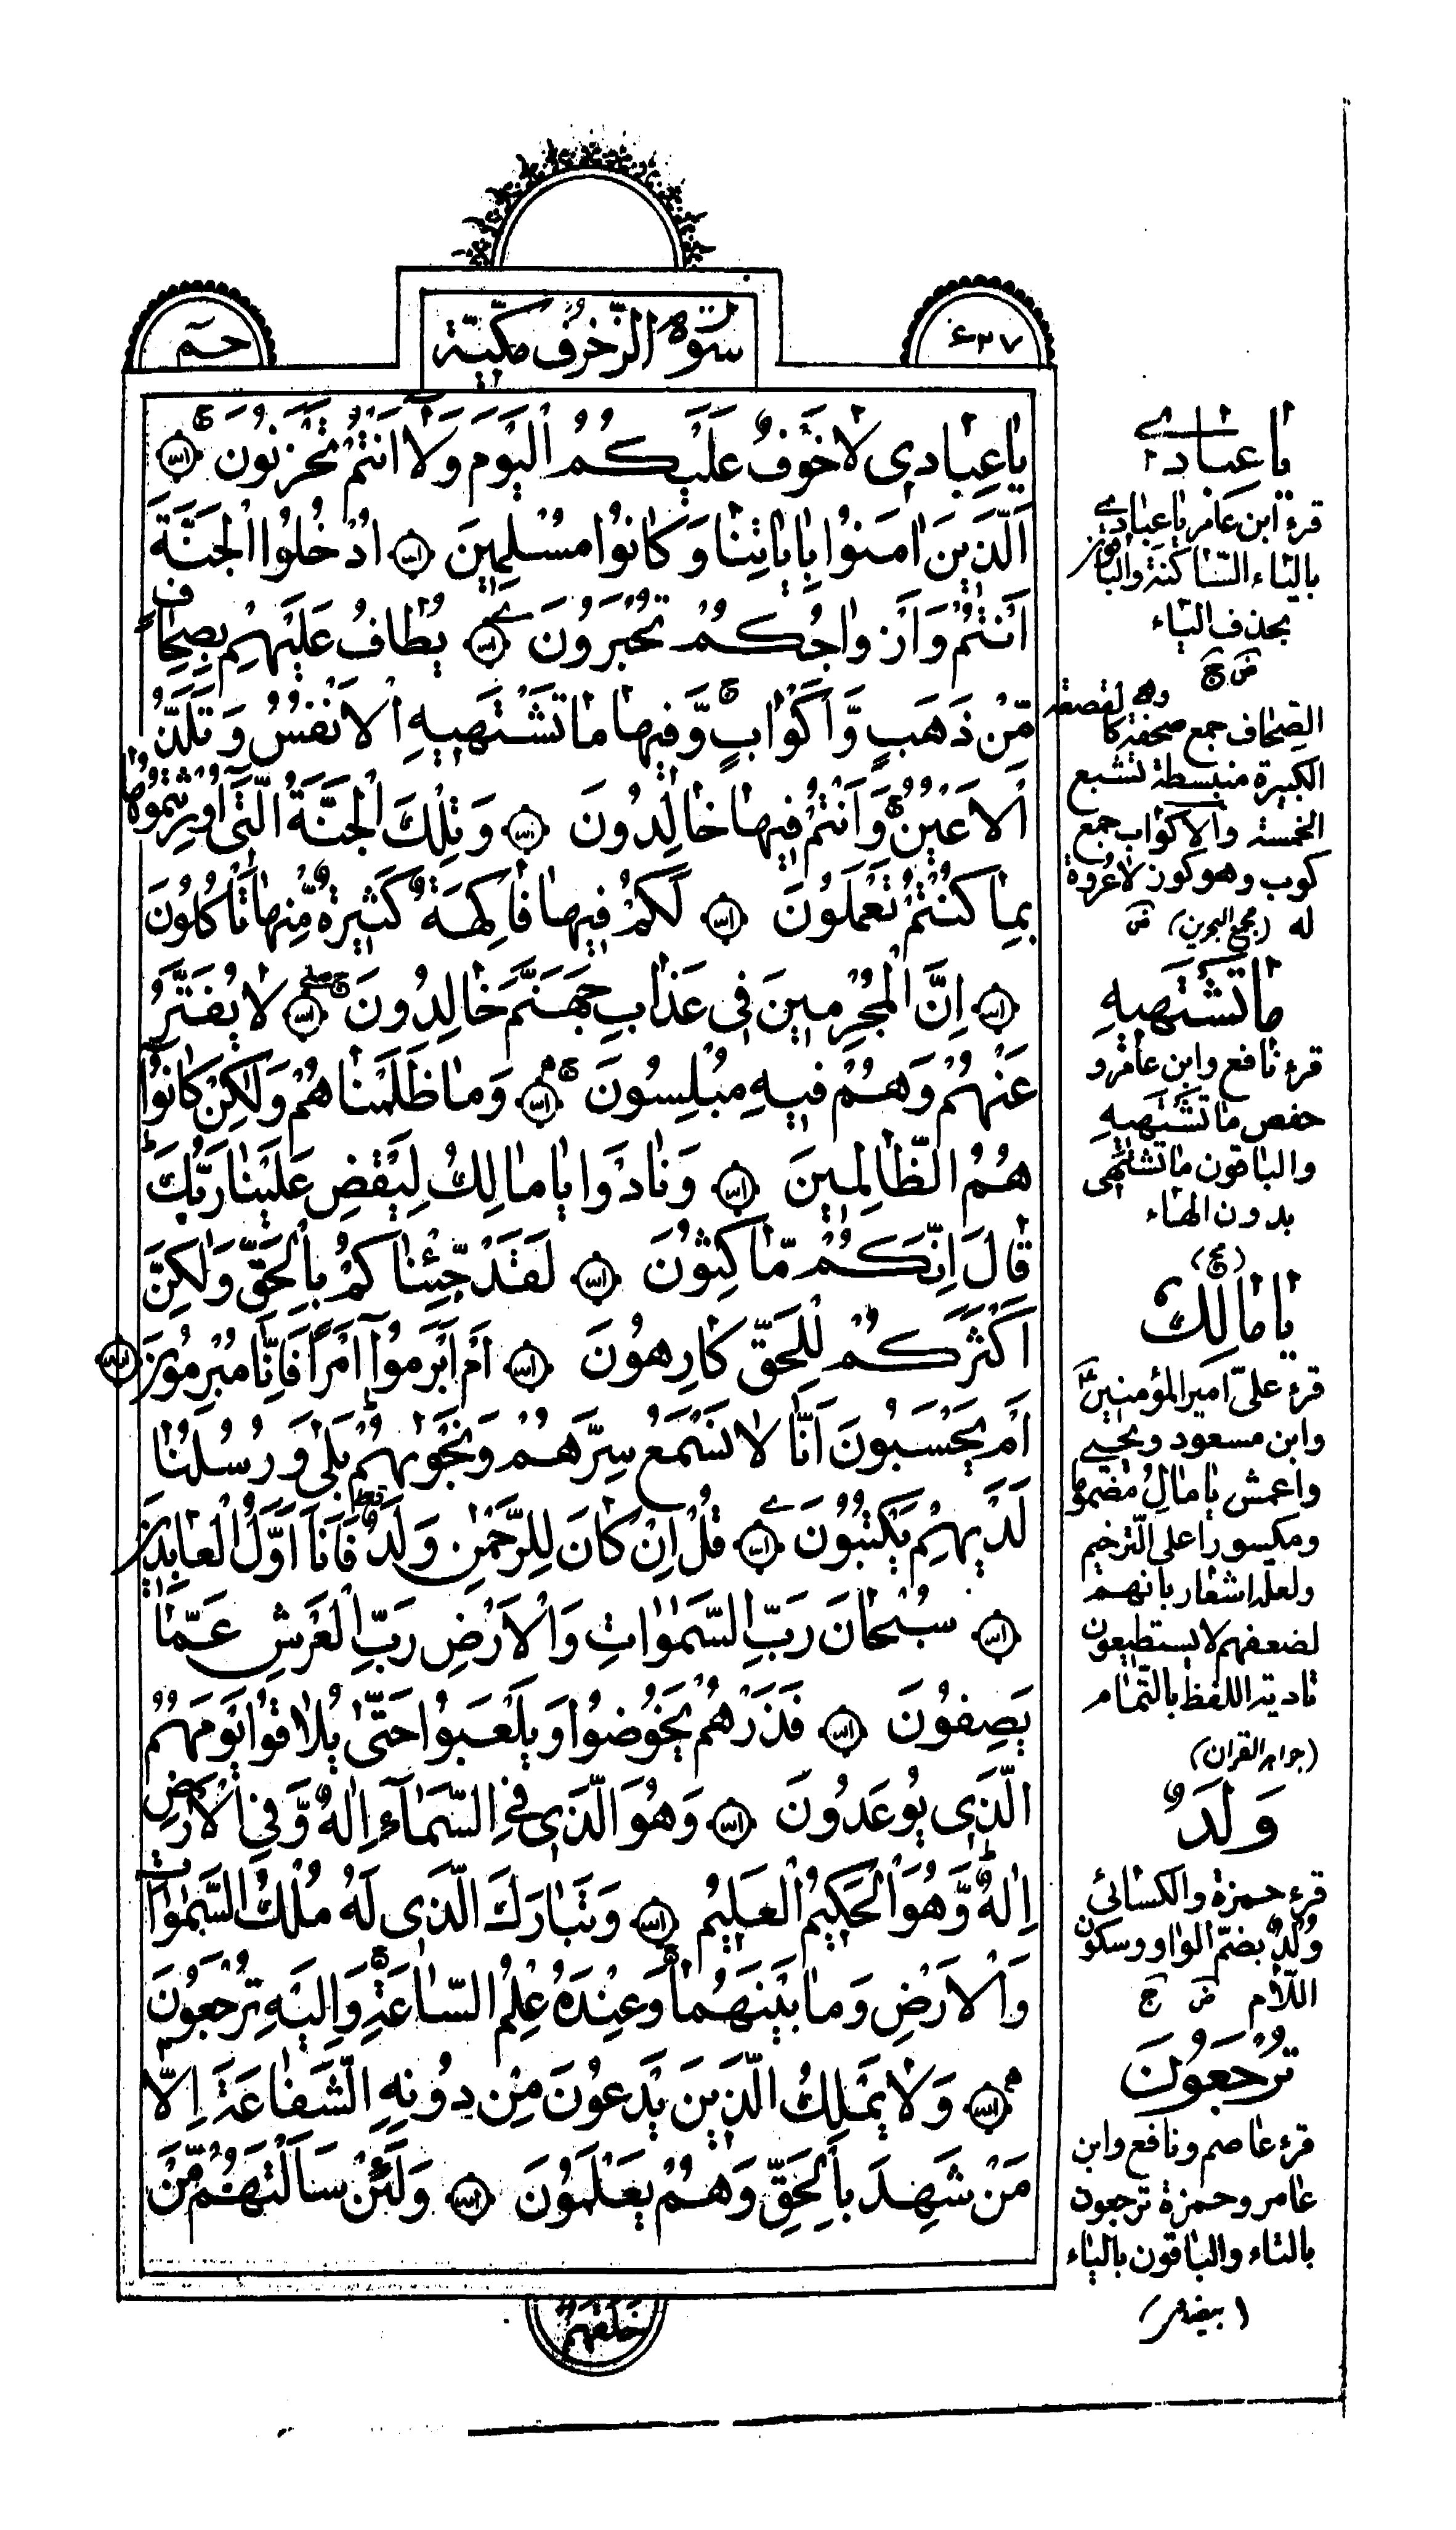 ٤٢٧
سورة الزّخرف مكّيّة
حٰمٓ
يَاعِبَادِى لَاخَوْفٌ عَلَيْكُمُ الْيَوْمَ وَلَآ اَنْتُمْ تَحْزَنُونَ ج
اَلَّذِينَ اٰمَنُوا بِاٰيَاتِنَا وَكَانُوا مُسْلِمِينَ اُدْخُلُوا الْجَنَّةَ
اَنْتُمْ وَاَزْوَاجُكُمْ تُحْبَرُونَ يُطَافُ عَلَيْهِمْ بِصِحَافٍ
مِّنْ ذَهَبٍ وَّاَكْوَابٍ ج وَّفِيهَا مَا تَشْتَهِيهِ الْاَنْفُسُ وَتَلَذُّ
الْاَعْيُنُ ج وَاَنْتُمْ فِيهَا خَالِدُونَ وَتِلْكَ الْجَنَّةُ الَّتِىٓ اُورِثْتُمُوهَا
بِمَا كُنْتُمْ تَعْمَلُونَ لَكُمْ فِيهَا فَاكِهَةٌ كَثِيرَةٌ مِّنْهَا تَاْكُلُونَ
اِنَّ الْمُجْرِمِينَ فِى عَذَابِ جَهَنَّمَ خَالِدُونَ ج لَا يُفَتَّرُ
عَنْهُمْ وَهُمْ فِيهِ مُبْلِسُونَ ج وَمَا ظَلَمْنَاهُمْ وَلٰكِنْ كَانُوا
هُمُ الظَّالِمِينَ وَنَادَوْا يَامَالِكُ لِيَقْضِ عَلَيْنَا رَبُّكَ ط
قَالَ اِنَّكُمْ مَّاكِثُونَ لَقَدْ جِئْنَاكُمْ بِالْحَقِّ وَلٰكِنَّ
اَكْثَرَكُمْ لِلْحَقِّ كَارِهُونَ اَمْ اَبْرَمُوٓا اَمْرًا فَاِنَّا مُبْرِمُونَ
اَمْ يَحْسَبُونَ اَنَّا لَا نَسْمَعُ سِرَّهُمْ وَنَجْوٰيهُمْ ط بَلٰى وَرُسُلُنَا
لَدَيْهِمْ يَكْتُبُونَ قُلْ اِنْ كَانَ لِلرَّحْمٰنِ وَلَدٌ فَاَنَا اَوَّلُ الْعَابِدِينَ
سُبْحَانَ رَبِّ السَّمٰوَاتِ وَالْاَرْضِ رَبِّ الْعَرْشِ عَمَّا
يَصِفُونَ فَذَرْهُمْ يَخُوضُوا وَيَلْعَبُوا حَتّٰى يُلَاقُوا يَوْمَهُمُ
الَّذِى يُوعَدُونَ وَهُوَ الَّذِى فِى السَّمَآءِ اِلٰهٌ وَّفِى الْاَرْضِ
اِلٰهٌ ط وَّهُوَ الْحَكِيمُ الْعَلِيمُ وَتَبَارَكَ الَّذِى لَهُ مُلْكُ السَّمٰوَاتِ
وَالْاَرْضِ وَمَا بَيْنَهُمَا ج وَعِنْدَهُ عِلْمُ السَّاعَةِ ج وَاِلَيْهِ تُرْجَعُونَ
وَلَا يَمْلِكُ الَّذِينَ يَدْعُونَ مِنْ دُونِهِ الشَّفَاعَةَ اِلَّا
مَنْ شَهِدَ بِالْحَقِّ وَهُمْ يَعْلَمُونَ وَلَئِنْ سَاَلْتَهُمْ مَّنْ
خَلَقَهُمْ
ياعِبادى
قرء ابن عامر ياعبادى
بالياء السّاكنة والباقون
بحذف الياء
ض ج
الصّحاف جمع صحفة كالقصعة وهى
الكبيرة منبسطة تشبع
الخمسة والاكواب جمع
كوب وهو كوز لاعُروة
له (مجمع البحرين) ض
ماتَشْتَهيهِ
قرء نافع وابن عامر و
حفص ما تشتهيه
والباقون ما تشتهى
بدون الهاء
(ج)
يامالِكُ
قرء علىّ اميرالمؤمنين
وابن مسعود ويحيى
واعمش يا مالِ مضموما
ومكسورا على التّرخيم
ولعلّه اشعار بانهم
لضعفهم لا يستطيعون
تادية اللفظ بالتّمام
(جواهر القران)
وَلَدٌ
قرء حمزة والكسائى
وُلْدٌ بضمّ الواو وسكون
اللّام ض ج
تُرْجَعُونَ
قرء عاصم ونافع وابن
عامر وحمزة ترجعون
بالتاء والباقون بالياء